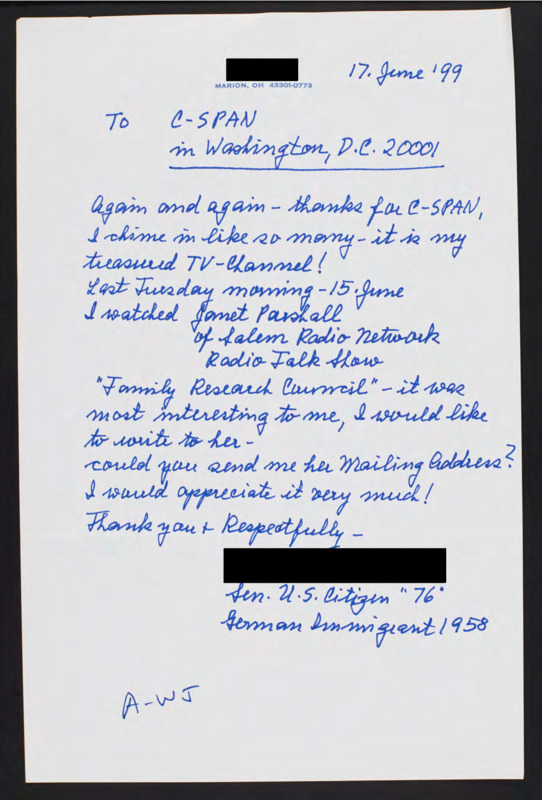 MARION, OH 43301-0773
17. June '99
To C-SPAN
in Washington, D.C. 20001
Again and again - thanks for C-SPAN,
I chime in like so many - it is my
treasured TV-Channel!
Last Tuesday morning - 15. June
I watched Janet Parshall
of Salem Radio Network
Radio Talk Show
"Family Research Council" - it was
most interesting to me, I would like
to write to her -
could you send me her Mailing Address?
I would appreciate it very much!
Thank you + Respectfully -
Sen. U.S. Citizen "76"
German Immigrant 1958
A-WJ